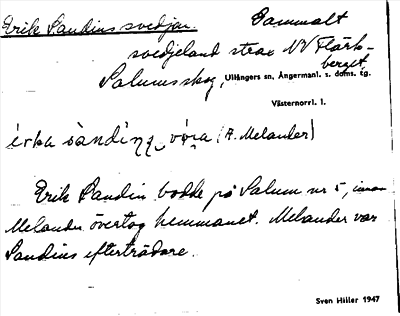 Erik Sandins svedjan. Gammalt
svedjeland strax NV Flärk-
berget,
Salumsskog, Ullångers sn, Ångermanl. s. doms. tg.
Västernorrl. l.
(A. Melander)
Erik Sandin bodde på Salum nr 5, innan
Melander övertog hemmanet. Melander var
Sandins efterträdare.
Sven Hiller 1947